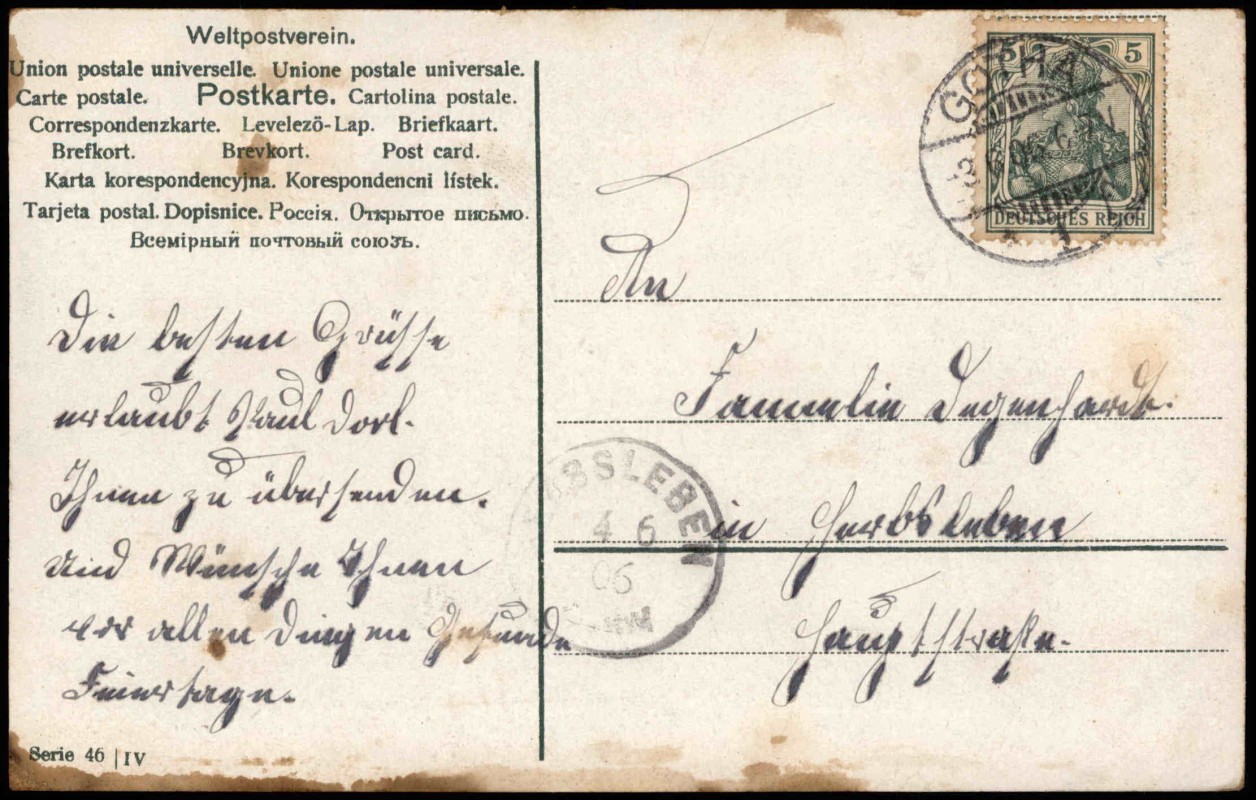 Weltpostverein.
Union postale universelle. Unione postale universale.
Carte postale. Postkarte. Cartolina postale.
Correspondenzkarte. Levelezö-Lap. Briefkaart.
Brefkort. Brevkort. Post card.
Karta korespondencyjna. Korespondencni lístek.
Tarjeta postal. Dopisnice. Россія. Открытое письмо.
Всемірный почтовый союзъ.
Die besten Grüsse
erlaubt Paul Dorl.
Ihnen zu übersenden.
und Wünsche Ihnen
vor allen Dingen Gesunde
Feiertage.
Serie 46 | IV
5 5
DEUTSCHES REICH
GOTHA
3.6.06.6-7N
* 1
An
Fammelie Degenhardt.
in Herbsleben
Hauptstraße.
BSLEBEN
4 6
06